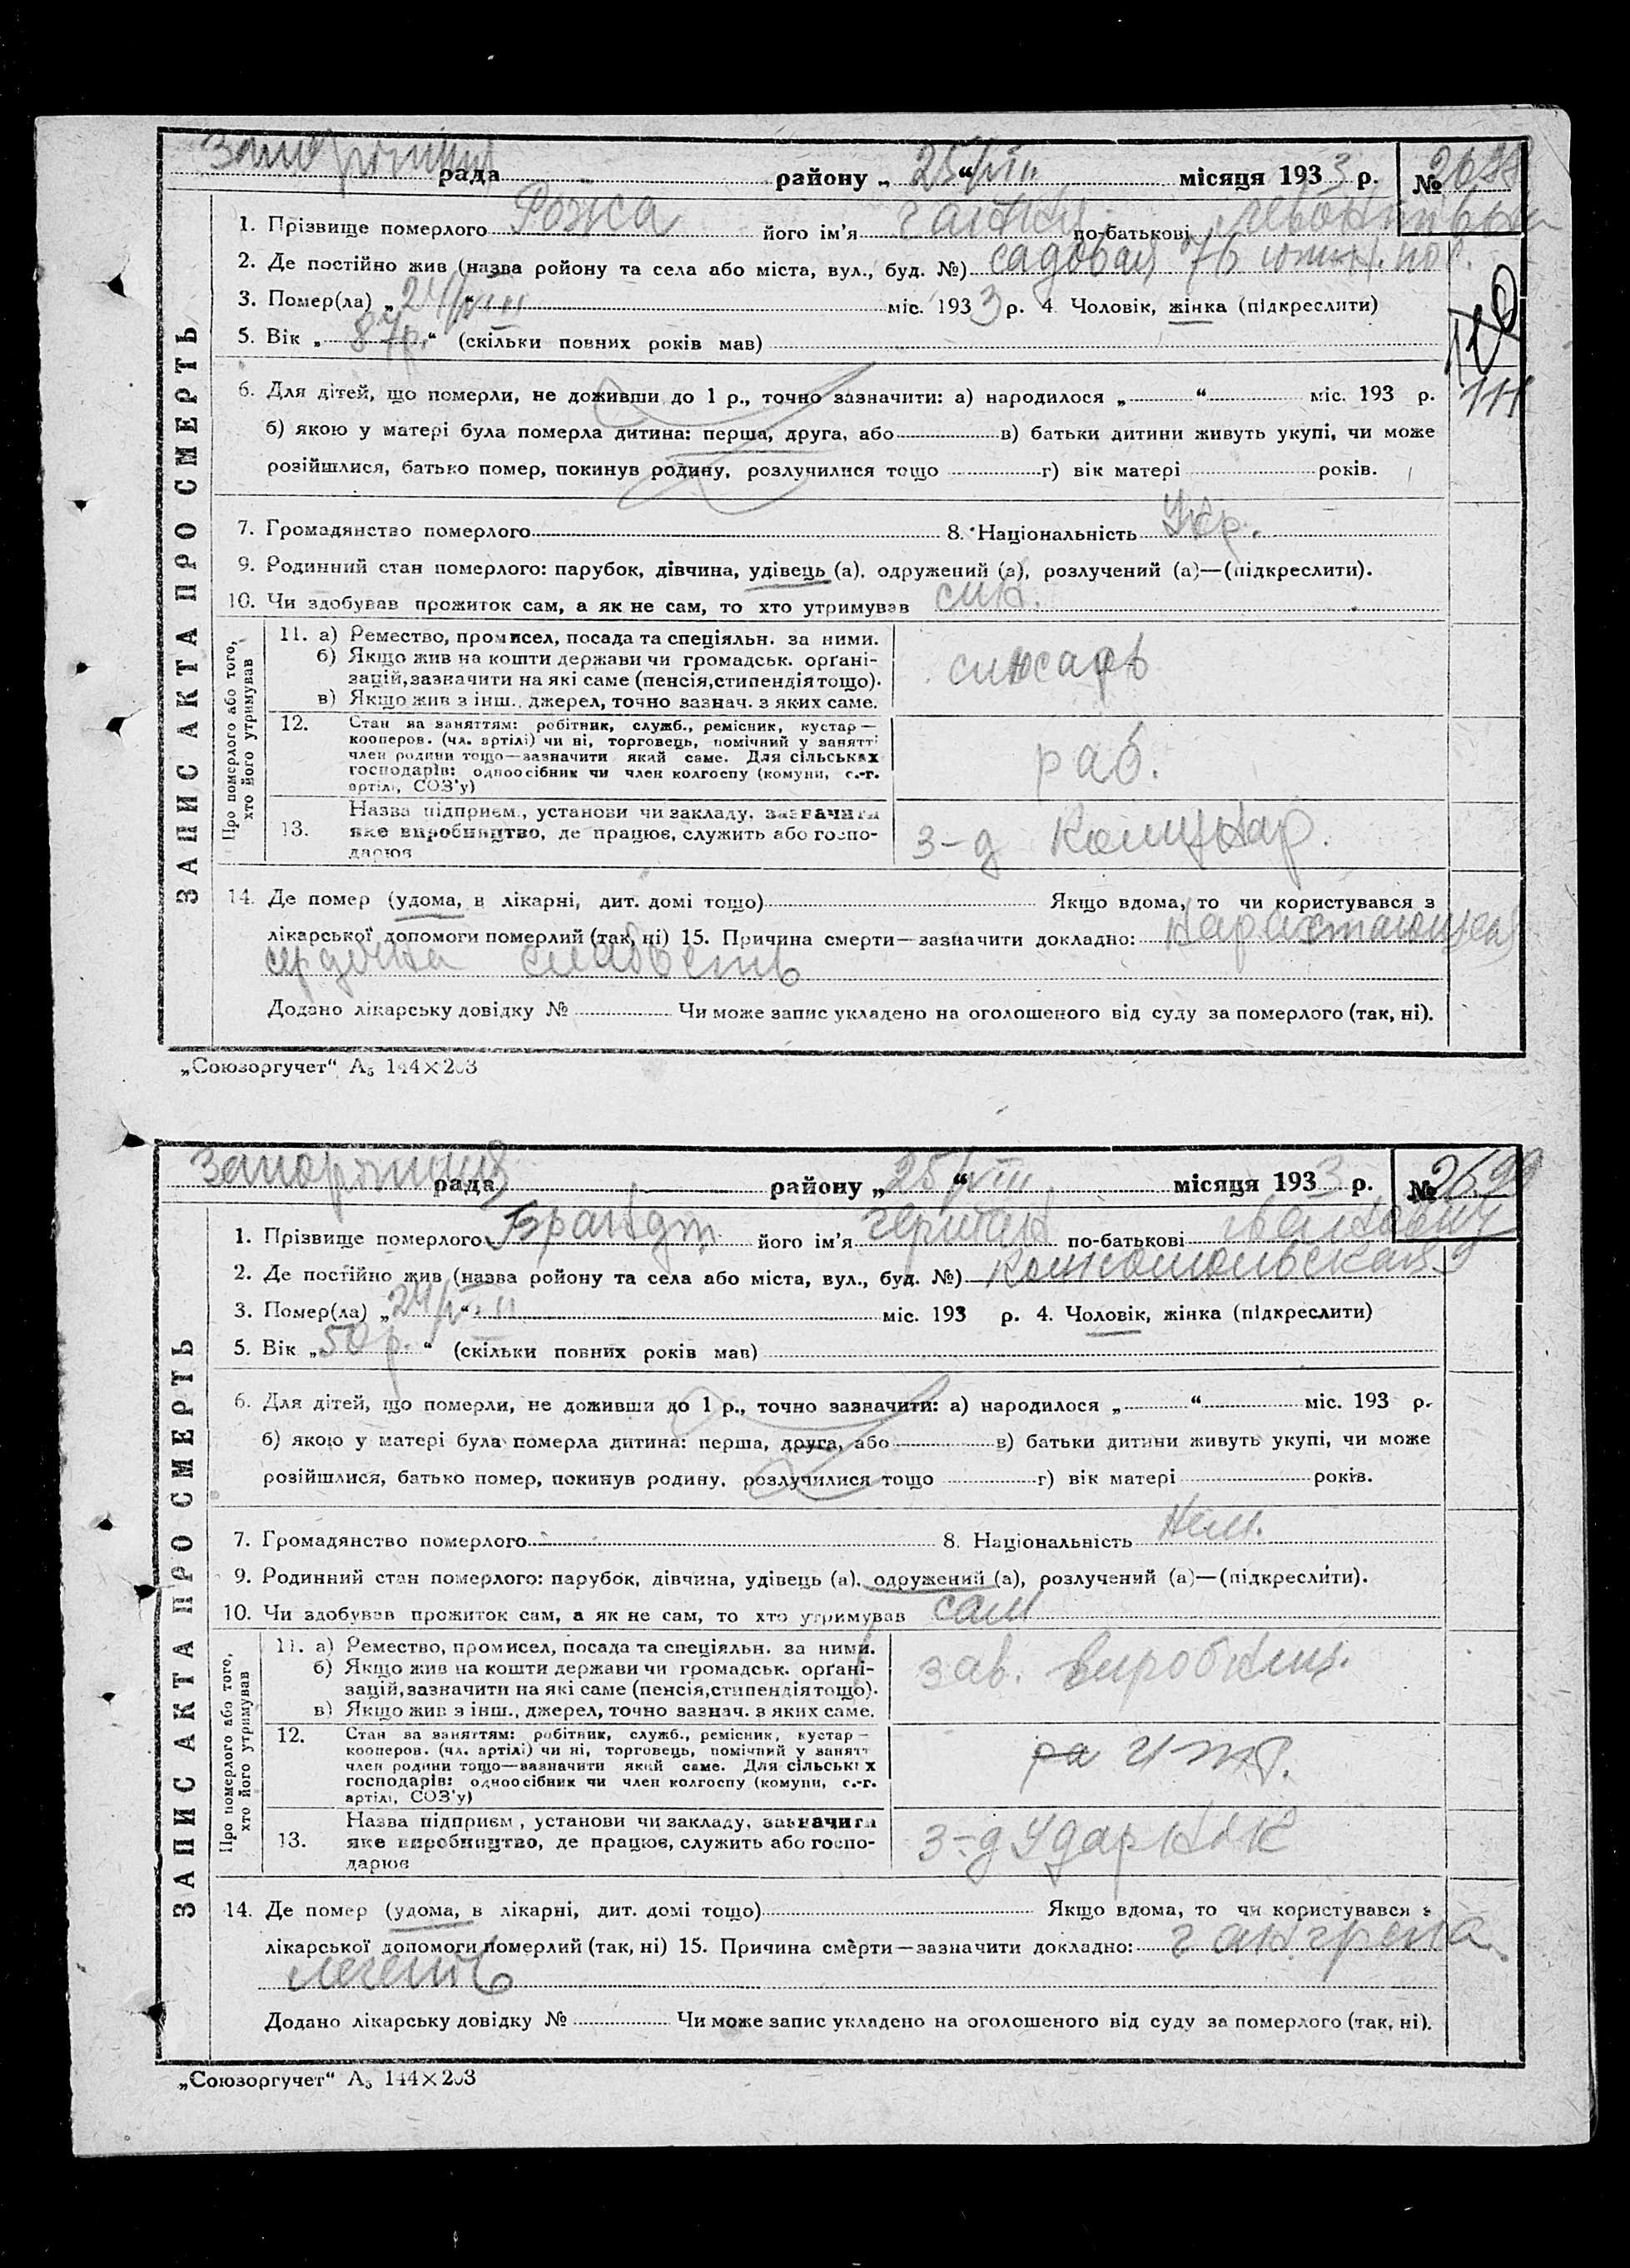 рада району „25/VIII“ місяця 1933 р. №
1. Прізвище померлого Рожса його ім'я по-батькові
2. Де постійно жив (назва ройону та села або міста, вул., буд. №) садовая 76 южн. пос.
3. Помер(ла) „24/VIII“ міс. 1933 р. 4 Чоловік, жінка (підкреслити)
5. Вік „87р.“ (скільки повних років мав)
6. Для дітей, що померли, не доживши до 1 р., точно зазначити: а) народилося „ “ міс. 193 р.
б) якою у матері була померла дитина: перша, друга, або в) батьки дитини живуть укупі, чи може
розійшлися, батько помер, покинув родину, розлучилися тощо г) вік матері років.
7. Громадянство померлого 8. Національність Укр.
9. Родинний стан померлого: парубок, дівчина, удівець (а), одружений (а), розлучений (а)—(підкреслити).
10. Чи здобував прожиток сам, а як не сам, то хто утримував син.
ЗАПИС АКТА ПРО СМЕРТЬ
Про померлого або того, хто його утримував
11. а) Ремество, промисел, посада та спеціяльн. за ними.
б) Якщо жив на кошти держави чи громадськ. орґані-
зацій, зазначити на які саме (пенсія, стипендія тощо).
в) Якщо жив з інш. джерел, точно зазнач. з яких саме.
слюсарь
12. Стан за заняттям: робітник, служб., ремісник, кустар—
кооперов. (чл. артілі) чи ні, торговець, помічний у занятті
член родини тощо—зазначити який саме. Для сільських
господарів: одноосібник чи член колгоспу (комуни, с.-г.
артілі, СОЗ'у)
раб.
13. Назва підприєм., установи чи закладу, зазначити
яке виробництво, де працює, служить або госпо-
дарює
з-д Комунар.
14. Де помер (удома, в лікарні, дит. домі тощо) Якщо вдома, то чи користувався з
лікарської допомоги померлий (так, ні) 15. Причина смерти—зазначити докладно: Нарастающая
сердечна слабость
Додано лікарську довідку № Чи може запис укладено на оголошеного від суду за померлого (так, ні).
„Союзоргучет“ А5 144×203
Запоріжжя рада району „25/VIII“ місяця 1933 р. № 2699
1. Прізвище померлого Брандт його ім'я Герман по-батькові Іванович
2. Де постійно жив (назва ройону та села або міста, вул., буд. №) Комсомольская 9
3. Помер(ла) „24/VIII“ міс. 193 р. 4. Чоловік, жінка (підкреслити)
5. Вік „50 р.“ (скільки повних років мав)
6. Для дітей, що померли, не доживши до 1 р., точно зазначити: а) народилося „ “ міс. 193 р.
б) якою у матері була померла дитина: перша, друга, або в) батьки дитини живуть укупі, чи може
розійшлися, батько помер, покинув родину, розлучилися тощо г) вік матері років.
7. Громадянство померлого 8. Національність Нем.
9. Родинний стан померлого: парубок, дівчина, удівець (а), одружений (а), розлучений (а)—(підкреслити).
10. Чи здобував прожиток сам, а як не сам, то хто утримував сам
ЗАПИС АКТА ПРО СМЕРТЬ
Про померлого або того, хто його утримував
11. а) Ремество, промисел, посада та спеціяльн. за ними.
б) Якщо жив на кошти держави чи громадськ. орґані-
зацій, зазначити на які саме (пенсія, стипендія тощо).
в) Якщо жив з інш., джерел, точно зазнач. з яких саме.
зав. виробниц.
12. Стан за заняттям: робітник, служб., ремісник, кустар—
кооперов. (чл. артілі) чи ні, торговець, помічний у занятт
член родини тощо—зазначити який саме. Для сільських
господарів: одноосібник чи член колгоспу (комуни, с.-г.
артілі, СОЗ'у)
ра итр.
13. Назва підприєм, установи чи закладу, зазначити
яке виробництво, де працює, служить або госпо-
дарює
з-д Ударник
14. Де помер (удома, в лікарні, дит. домі тощо) Якщо вдома, то чи користувався з
лікарської допомоги померлий (так, ні) 15. Причина смерти—зазначити докладно: гангрена
легень
Додано лікарську довідку № Чи може запис укладено на оголошеного від суду за померлого (так, ні).
„Союзоргучет“ А5 144×203